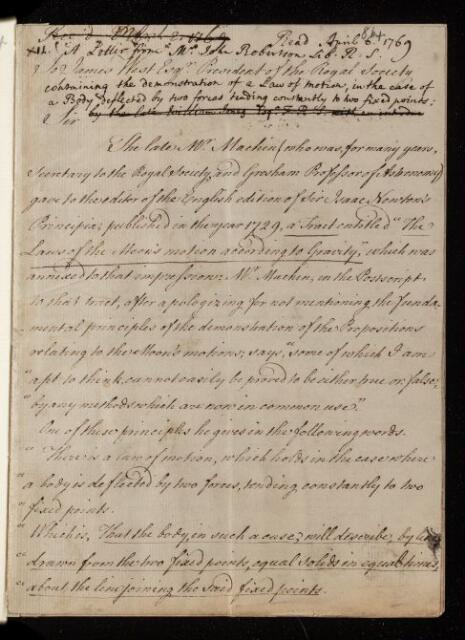 Read April 6. 1769
XII. A Letter from Mr. John Robertson Lib. R. S.
to James West Esqr. President of the Royal Society
containing the demonstration of a Law of Motion, in the case of
a Body deflected by two forces tending constantly to two fixed points:
Sir
The late Mr. Machin (who was, for many years,
Secretary to the Royal Society, and Gresham Professor of Astronomy)
gave to the editor of the English edition of Sir Isaac Newton's
Principia; published in the year 1729, a Tract entitled "The
Laws of the Moon's motion according to Gravity", which was
annexed to that impression: Mr. Machin, in the Postscript
to that tract, after apologizing for not mentioning the funda-
mental principles of the demonstration of the Propositions
relating to the Moon's motions; says, "some of which I am
" apt to think, cannot easily be proved to be either true or false,
" by any methods which are now in common use."
One of these principles he gives in the following words.
" There is a law of motion, which holds in the case where
" a body is deflected by two forces, tending constantly to two
" fixed points.
" Which is, That the body, in such a case, will describe, by lines
" drawn from the two fixed points, equal solids in equal times,
" about the line joining the said fixed points.